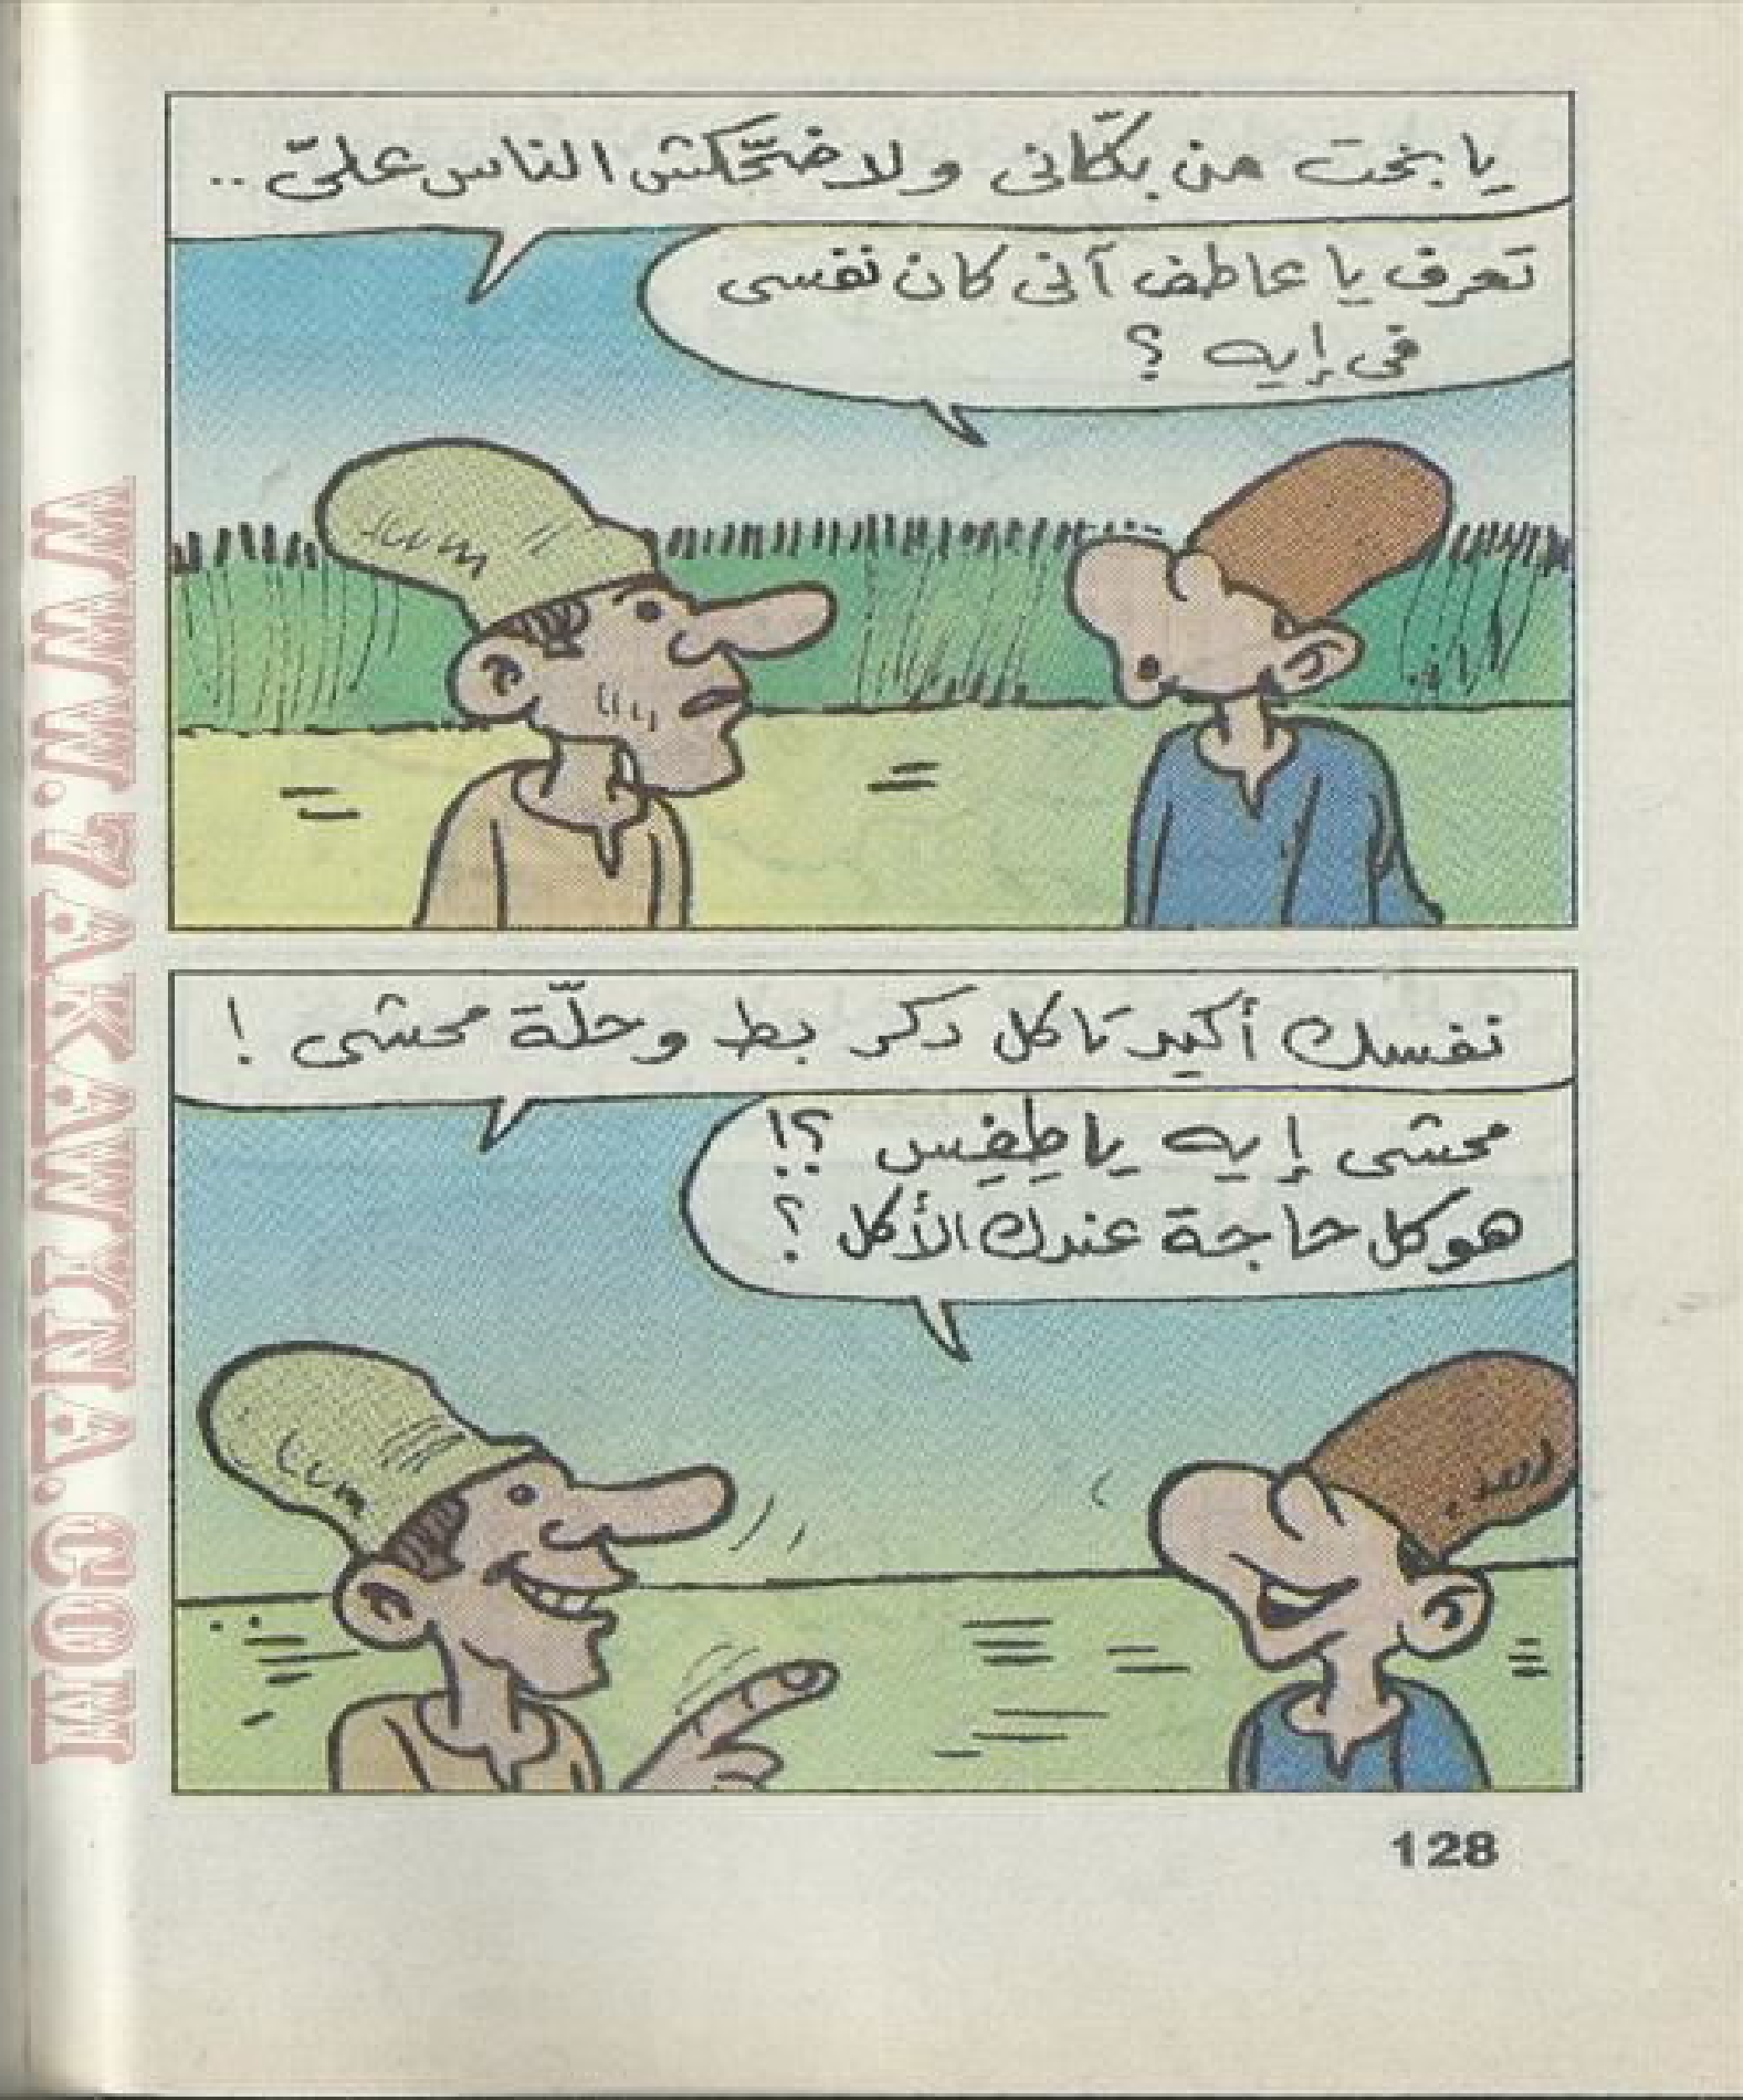 يا بخت من بكّانى ولا ضحّكش الناس علىّ ..
تعرف يا عاطف آنى كان نفسى
فى إيه ؟
نفسك أكيد تاكل دكر بط وحلّة محشى !
محشى إيه يا طِفِس ؟!
هو كل حاجة عندك الأكل ؟
128
WWW.7AKAWEENA.COM